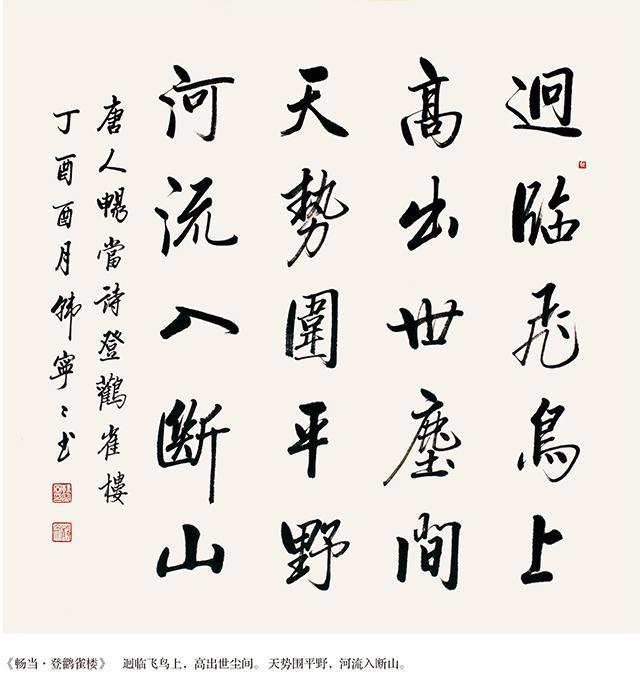 迥臨飛鳥上
高出世塵間
天勢圍平野
河流入斷山
唐人暢當詩登鸛雀樓
丁酉酉月韩寧〻书
《畅当·登鹳雀楼》 迥临飞鸟上，高出世尘间。天势围平野，河流入断山。